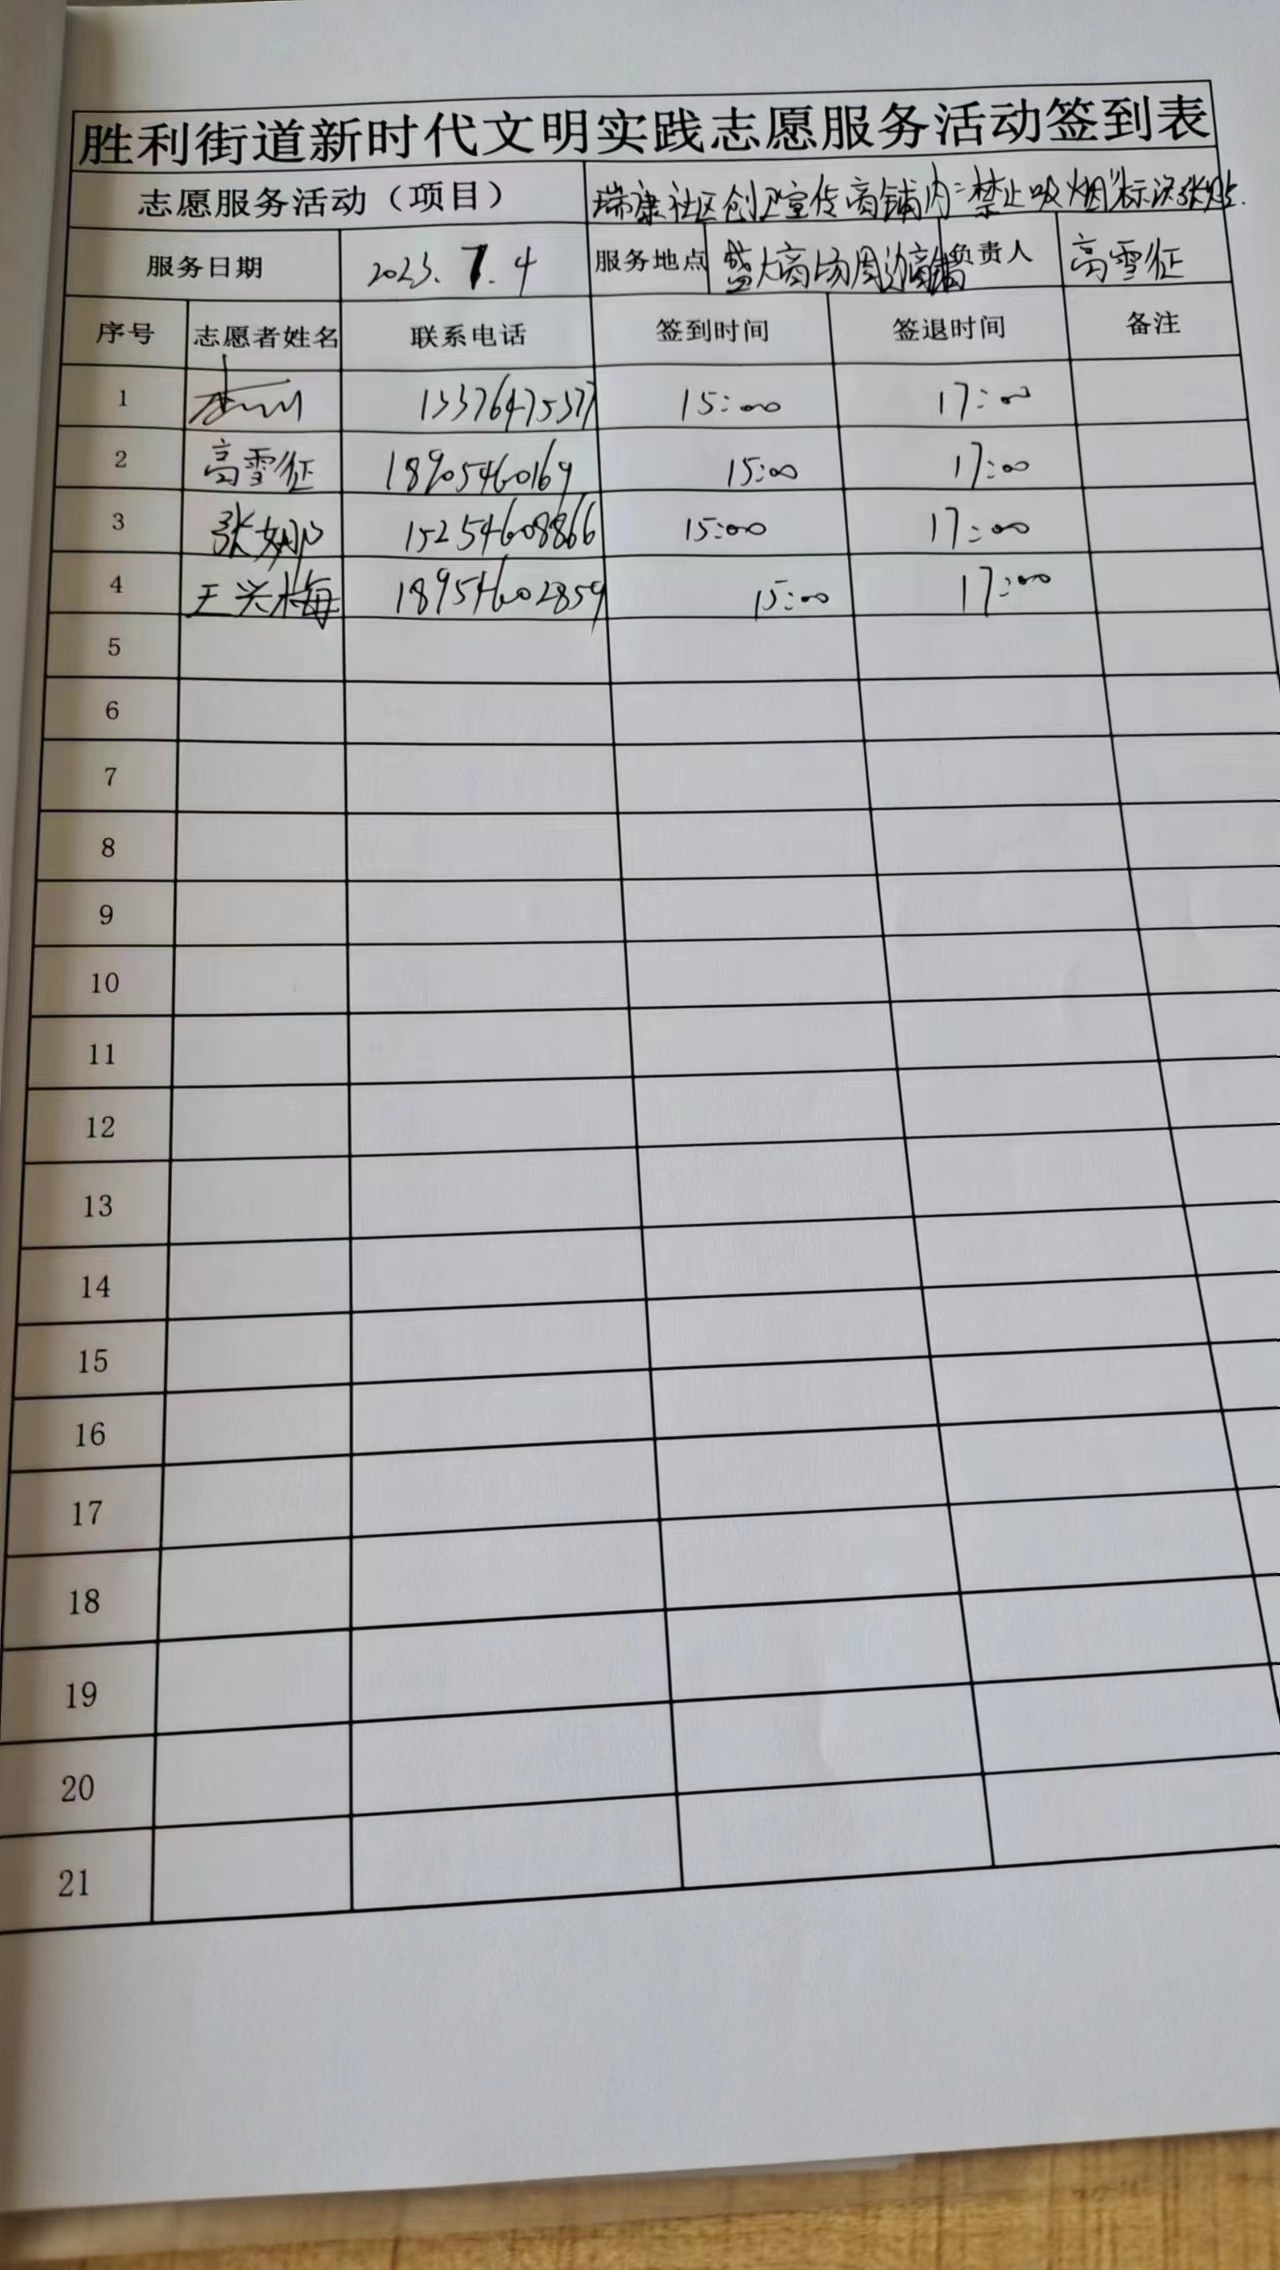 胜利街道新时代文明实践志愿服务活动签到表
志愿服务活动（项目） 瑞康社区创卫宣传商铺内“禁止吸烟”标识张贴.
服务日期 2023.7.4 服务地点 盛大商场周边商铺 负责人 高雪征
序号 志愿者姓名 联系电话 签到时间 签退时间 备注
1 15376475377 15:00 17:00
2 高雪征 18905460169 15:00 17:00
3 张娜 15254608866 15:00 17:00
4 王兴梅 18954602859 15:00 17:00
5
6
7
8
9
10
11
12
13
14
15
16
17
18
19
20
21